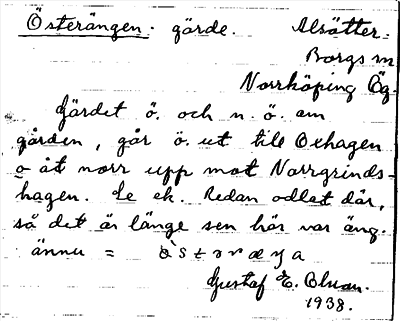 Österängen. gärde. Alsätter.
Borgs sn
Norrköping Ög.
Gärdet ö. och n. ö. om
gården, går ö. ut till Oxhagen
o åt norr upp mot Norrgrinds-
hagen. Se ek. Redan odlat där,
så det är länge sen här var äng.
ännu = òstəræŋa
Gustaf E. Bluan.
1938.